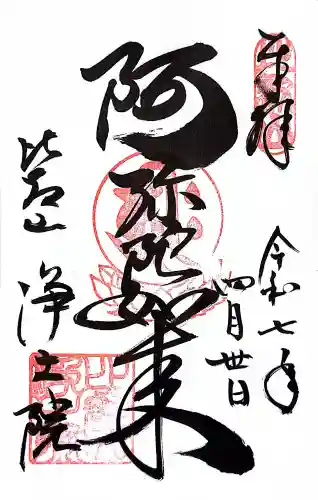 奉拝
令和七年
四月廿日
阿弥陀如来
比叡山
浄土院